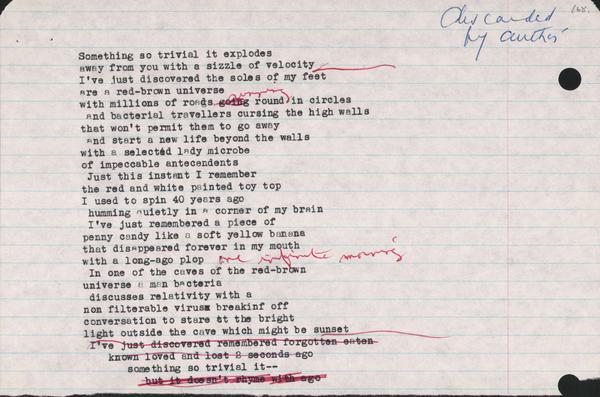 168.
Discarded
by author
Something so trivial it explodes
away from you with a sizzle of velocity
I've just discovered the soles of my feet
are a red-brown universe
running
with millions of roads going round in circles
and bacterial travellers cursing the high walls
that won't permit them to go away
and start a new life beyond the walls
with a selected lady microbe
of impeccable antecendents
Just this instant I remember
the red and white painted toy top
I used to spin 40 years ago
humming quietly in a corner of my brain
I've just remembered a piece of
penny candy like a soft yellow banana
that disappeared forever in my mouth
with a long-ago plop one infinite morning
In one of the caves of the red-brown
universe a man bacteria
discusses relativity with a
non filterable virusx breakinf off
conversation to stare at the bright
light outside the cave which might be sunset
I've just discovered remembered forgotten eaten
known loved and lost 2 seconds ago
something so trivial it--
but it doesn't rhyme with ago